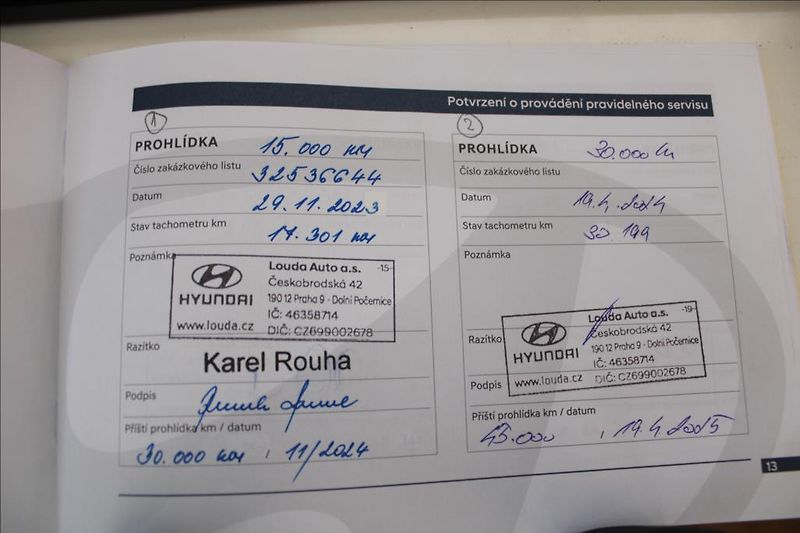 Potvrzení o provádění pravidelného servisu
1
PROHLÍDKA 15.000 km
Číslo zakázkového listu 32536644
Datum 29.11.2023
Stav tachometru km 17.301 km
Poznámka
HYUNDAI
www.louda.cz
Louda Auto a.s. -15-
Českobrodská 42
190 12 Praha 9 - Dolní Počernice
IČ: 46358714
DIČ: CZ699002678
Razítko
Karel Rouha
Podpis
Příští prohlídka km / datum
30.000 km , 11/2024
2
PROHLÍDKA 30.000 km
Číslo zakázkového listu
Datum 19.4.2024
Stav tachometru km 30.199
Poznámka
Razítko
HYUNDAI
www.louda.cz
Louda Auto a.s. -19-
Českobrodská 42
190 12 Praha 9 - Dolní Počernice
IČ: 46358714
DIČ: CZ699002678
Podpis
Příští prohlídka km / datum
45.000 , 19.4.2025
13